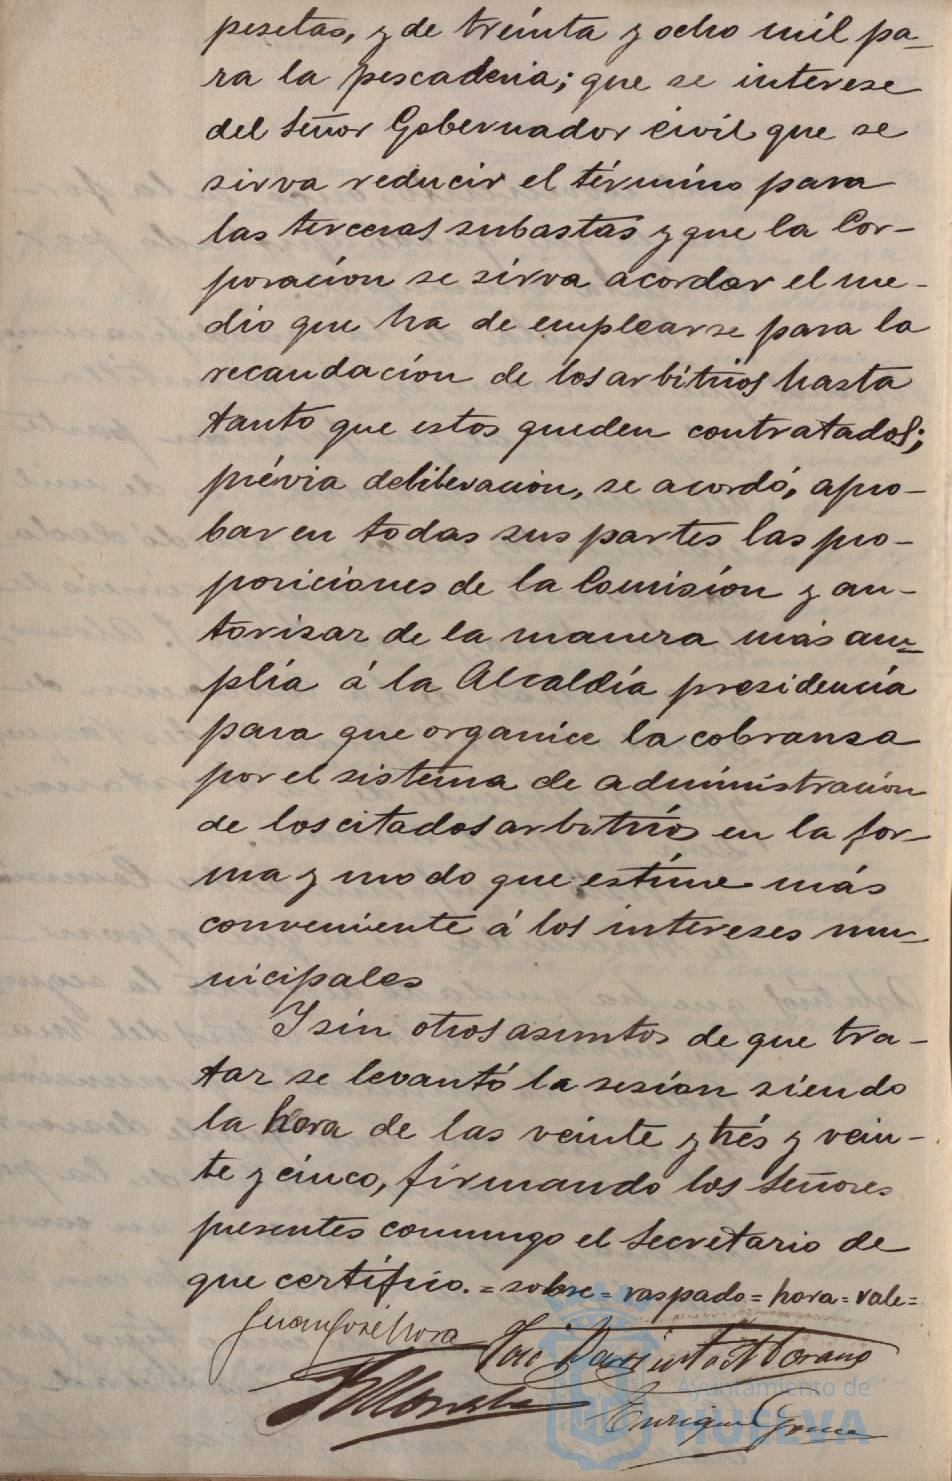 pesetas, y de treinta y ocho mil pa-
ra la pescaderia; que se interese
del Señor Gobernador civil que se
sirva reducir el término para
las terceras subastas y que la Cor-
poración se sirva acordar el me-
dio que ha de emplearse para la
recaudación de los arbitrios hasta
tanto que estos queden contratados;
prévia deliberación, se acordó, apro-
bar en todas sus partes las pro-
posiciones de la Comisión y au-
torisar de la manera más am-
plia á la Alcaldía presidencia
para que organice la cobransa
por el sistema de administración
de los citados arbitrios en la for-
ma y modo que estime más
conveniente á los intereses mu-
nicipales
Y sin otros asuntos de que tra-
tar se levantó la sesión siendo
la hora de las veinte y trés y vein-
te y cinco, firmando los Señores
presentes conmigo el Secretario de
que certifico. = sobre = raspado = hora = vale =
Juan José Mora José
Enrique
Ayuntamiento de
HUELVA